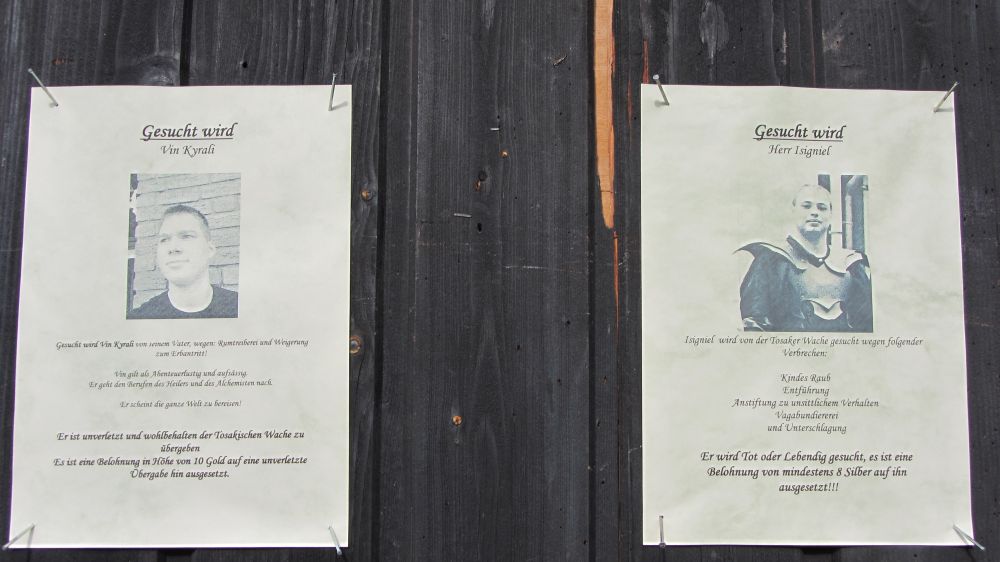 Gesucht wird
Vin Kyrali
Gesucht wird Vin Kyrali von seinem Vater, wegen: Rumtreiberei und Weigerung
zum Erbantritt!
Vin gilt als Abenteuerlustig und aufsässig.
Er geht den Berufen des Heilers und des Alchemisten nach.
Er scheint die ganze Welt zu bereisen!
Er ist unverletzt und wohlbehalten der Tosakischen Wache zu
übergeben
Es ist eine Belohnung in Höhe von 10 Gold auf eine unverletzte
Übergabe hin ausgesetzt.
Gesucht wird
Herr Isigniel
Isigniel wird von der Tosaker Wache gesucht wegen folgender
Verbrechen:
Kindes Raub
Entführung
Anstiftung zu unsittlichem Verhalten
Vagabundiererei
und Unterschlagung
Er wird Tot oder Lebendig gesucht, es ist eine
Belohnung von mindestens 8 Silber auf ihn
ausgesetzt!!!